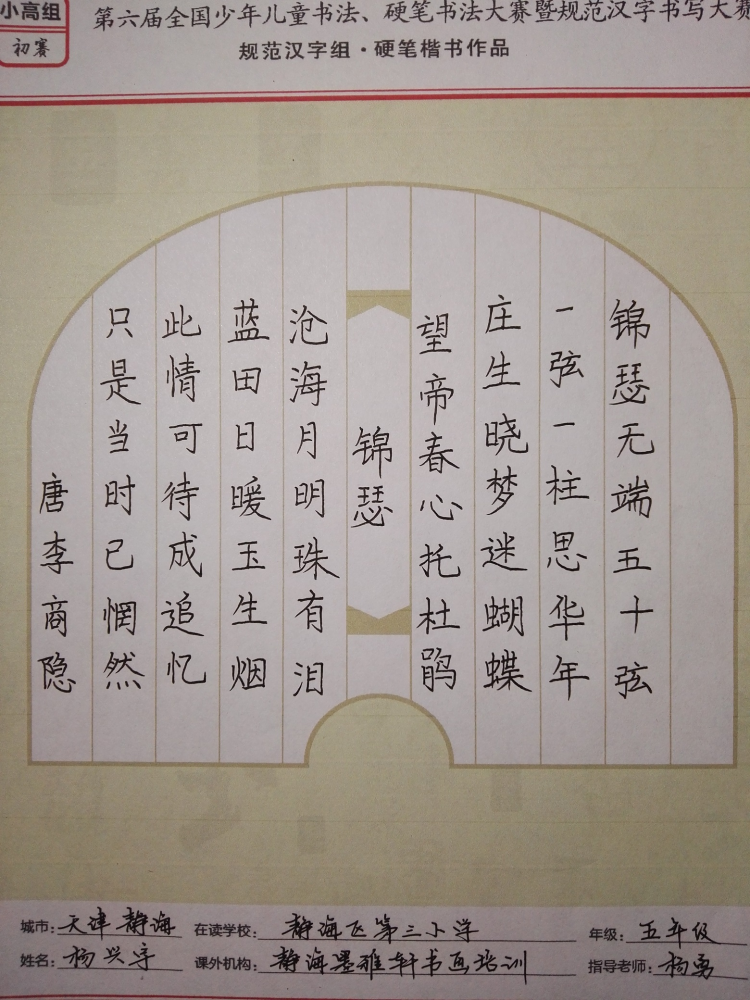 小高组
初赛
第六届全国少年儿童书法、硬笔书法大赛暨规范汉字书写大赛
规范汉字组·硬笔楷书作品
锦瑟无端五十弦
一弦一柱思华年
庄生晓梦迷蝴蝶
望帝春心托杜鹃
锦瑟
沧海月明珠有泪
蓝田日暖玉生烟
此情可待成追忆
只是当时已惘然
唐李商隐
城市：天津静海 在读学校：静海区第三小学 年级：五年级
姓名：杨兴宇 课外机构：静海墨雅轩书画培训 指导老师：杨勇